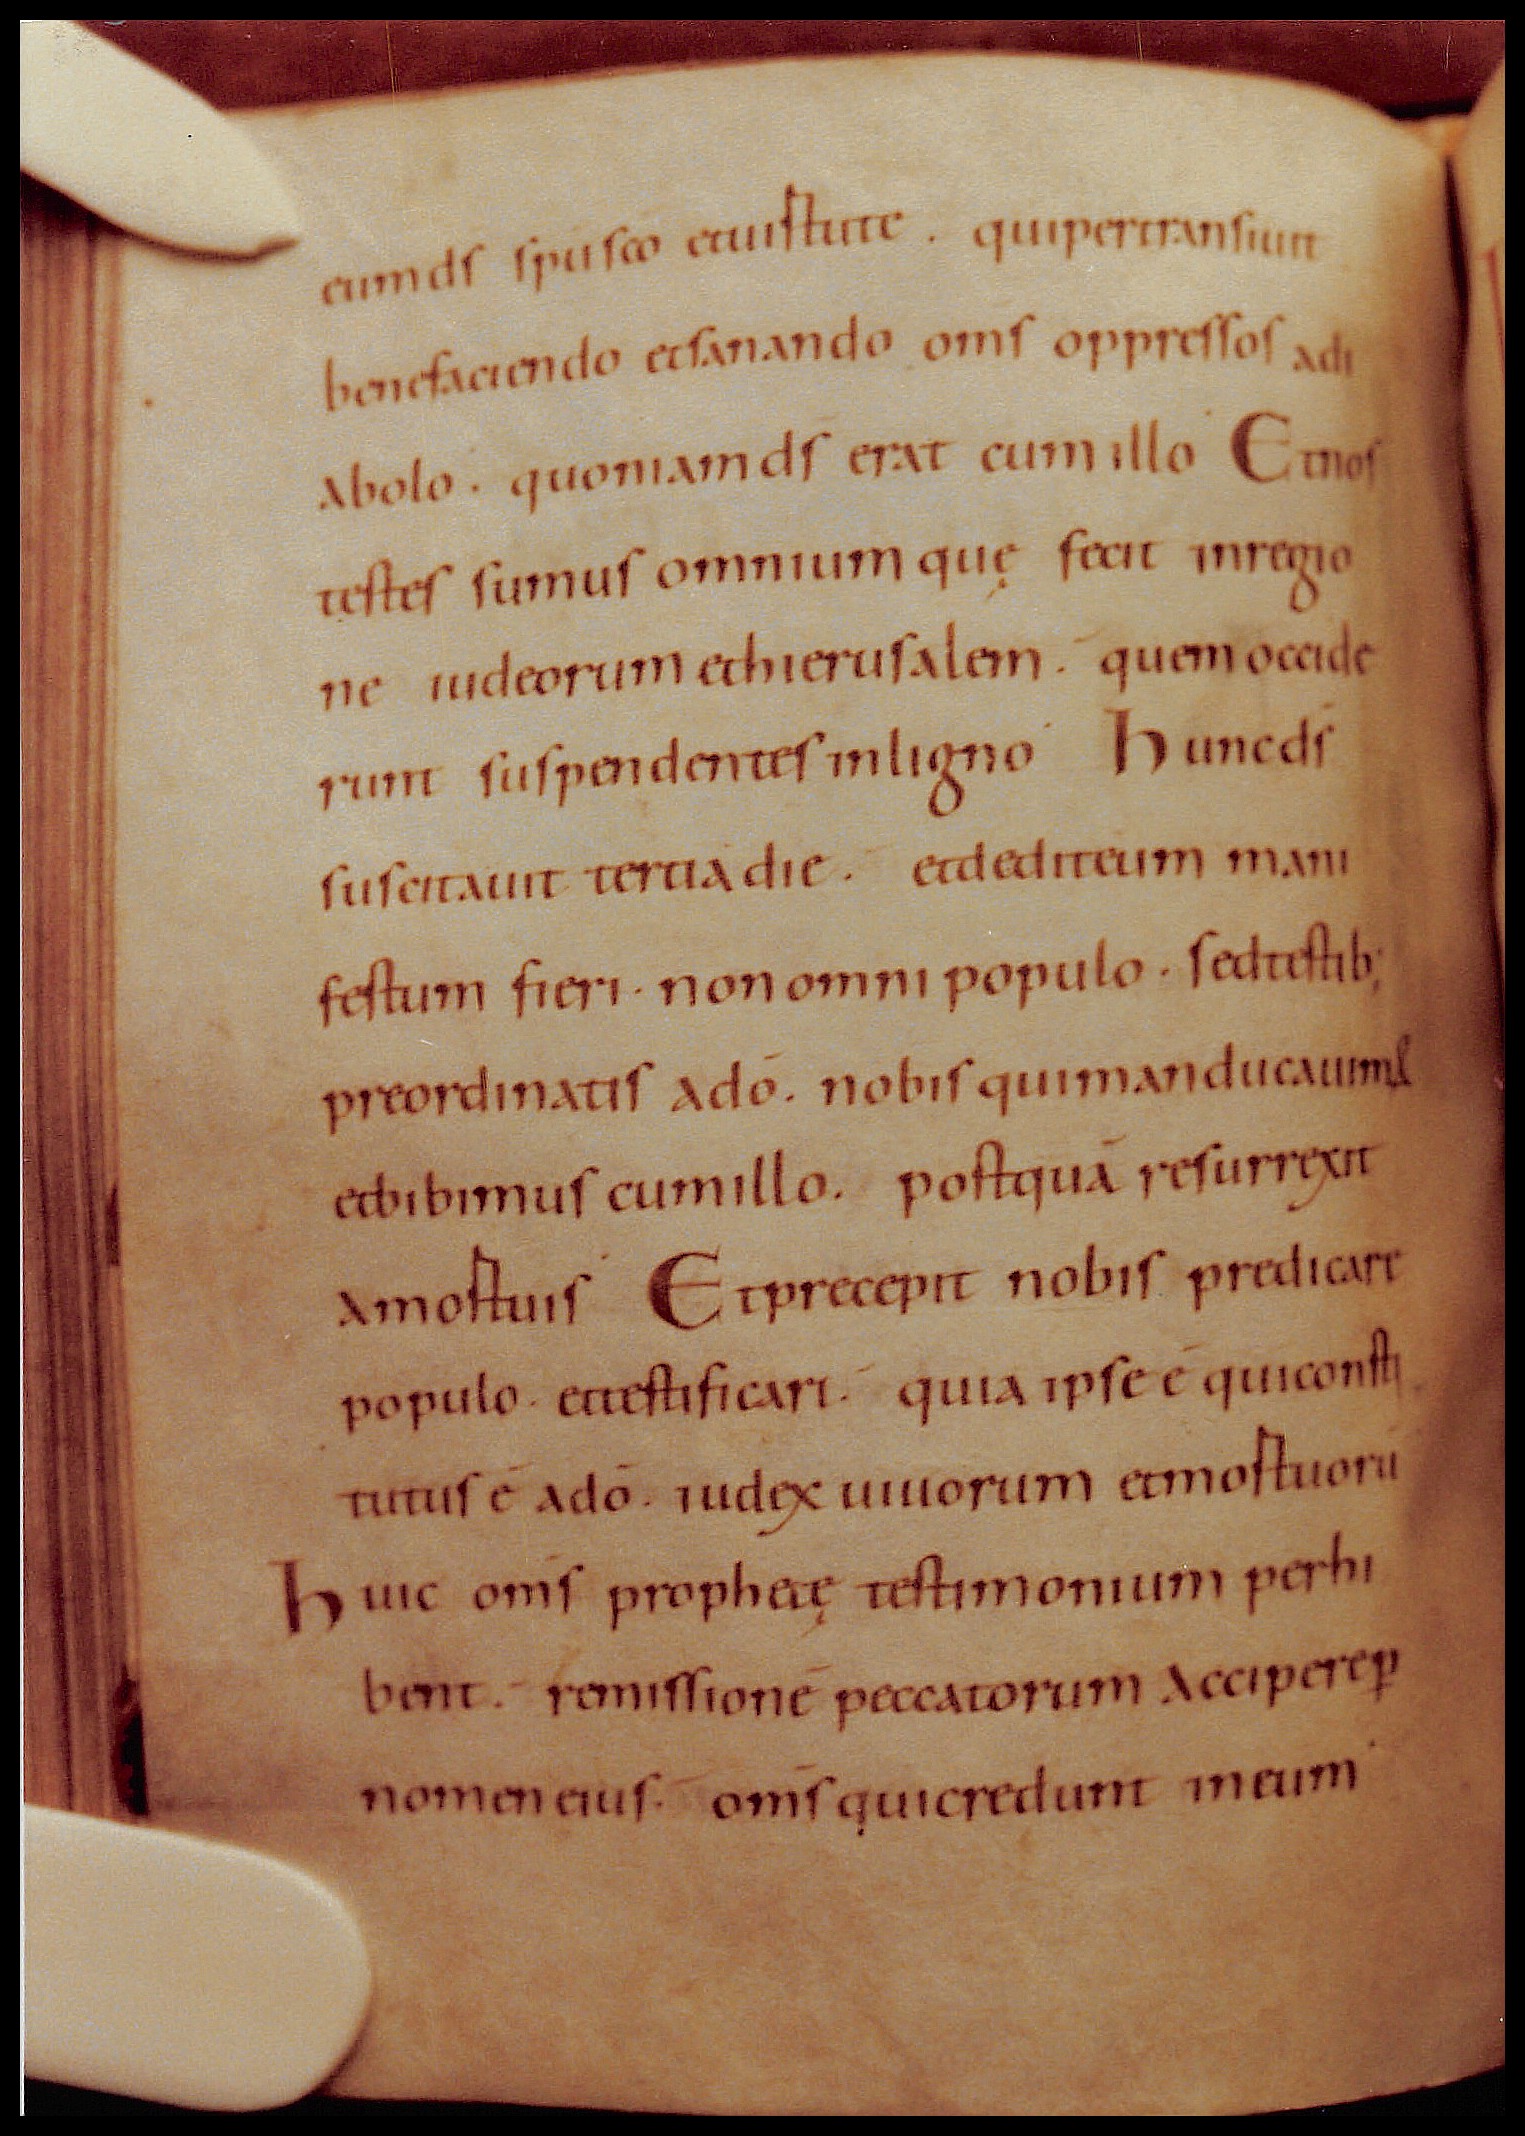 eum ds spu sco et uirtute . qui pertransiuit
benefaciendo et sanando om̄s oppressos a di
abolo . quoniam ds erat cum illo Et nos
testes sumus omnium quę fecit in regio
ne iudeorum et hierusalem . quem occide
runt suspendentes in ligno h unc ds̄
suscitauit tertia die . et dedit eum mani
festum fieri . non omni populo . sed testib;
preordinatis a dō . nobis qui manducauimus
et bibimus cum illo . postquā resurrexit
a mortuis Et precepit nobis predicare
populo . et testificari . quia ipse ē qui consti
tutus ē a dō . iudex uiuorum et mortuorū
huic om̄s prophetę testimonium perhi
bent . remissionē peccatorum accipere ꝑ
nomen eius . om̄s qui credunt in eum